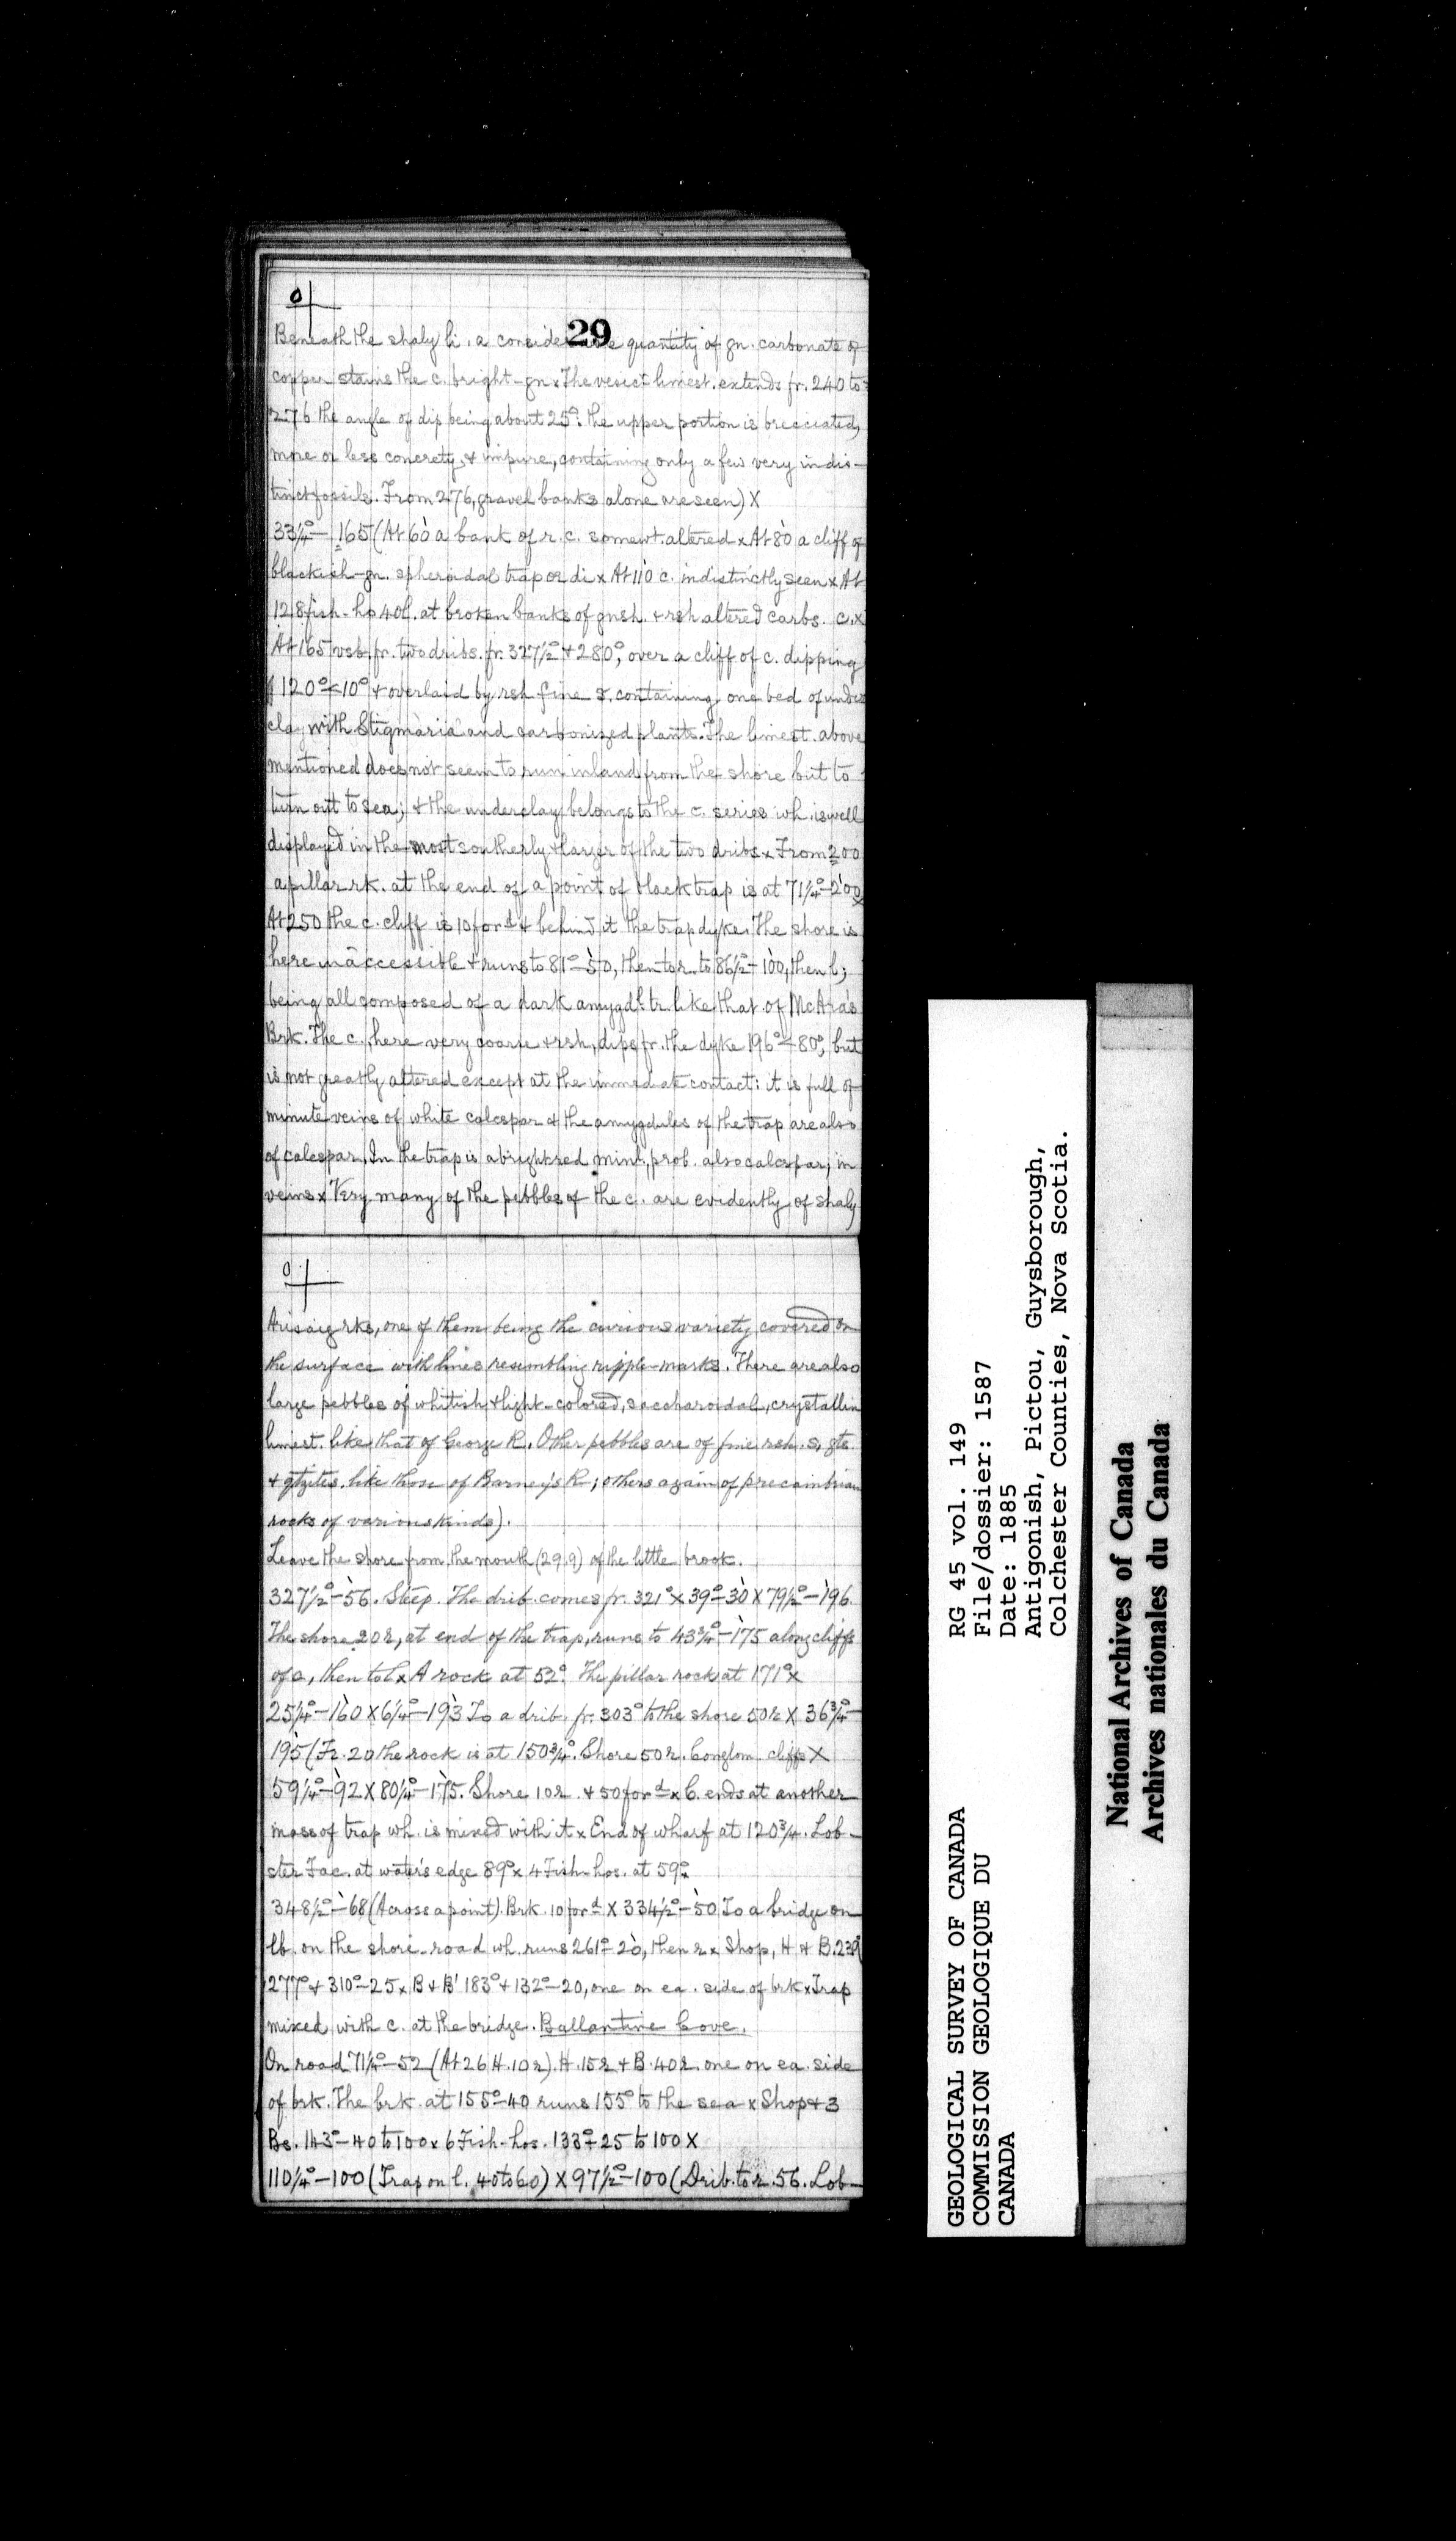 29
Beneath the shaly li. a considerable quantity of gn. carbonate of
copper stains the c. bright-gn x The vesict limest. extends fr. 240 to
276 the angle of dip being about 25°: the upper portion is brecciated,
more or less concrety & impure, containing only a few very indis-
tinct fossils. From 276, gravel banks alone are seen) X
33¼°-165 (At 60 a bank of r. c. somewt. altered x At 80 a cliff of
blackish-gn. spheroidal trap or di x At 110 c. indistinctly seen x At
128 fish-ho 40l. at broken banks of gnsh. & rsh altered carbs. c. x
At 165 vsb. fr. two dribs. fr. 327½° & 280°, over a cliff of c. dipping
120°<10° & overlaid by rsh fine s. containing one bed of under
clay with Stigmaria and carbonized plants. The limest. above
mentioned does not seem to run inland from the shore but to
turn out to sea; & the underclay belongs to the c. series wh. is well
displayed in the most southerly & larger of the two dribs x From 200
a pillar rk. at the end of a point of black trap is at 71¼°-200 x
At 250 the c. cliff is 10 ford & behind it the trap dyke. The shore is
here inaccessible & runs to 81°-50, then to r. to 86½°-100, then l;
being all composed of a dark amygdl. tr. like that of McAra's
Brk. The c. here very coarse & rsh, dips fr. the dyke 196°<80°, but
is not greatly altered except at the immediate contact: it is full of
minute veins of white calcspar & the amygdules of the trap are also
of calcspar. In the trap is a bright red minl., prob. also calcspar, in
veins x Very many of the pebbles of the c. are evidently of shaly
Arisaig rks, one of them being the curious variety covered on
the surface with lines resembling ripple-marks. There are also
large pebbles of whitish & light-colored, saccharoidal, crystallin
limest. like that of George R. Other pebbles are of fine rsh. s, gts
& qtzites. like those of Barney's R; others again of precambrian
rocks of various kinds).
Leave the shore from the mouth (29,9) of the little brook.
327½°-56. Steep. The drib comes fr. 321° X 39°-30 X 79½°-196.
The shore 20 r, at end of the trap, runs to 43¾°-175 along cliffs
of c, then to l x A rock at 52°. The pillar rock at 171° x
25¼°-160 X 6¼°-193 To a drib. fr. 303° to the shore 50r X 36¾°-
195 (Fr. 20 the rock is at 150¾°. Shore 50 r. Conglom. cliffs X
59¼°-92 X 80¼°-175. Shore 10 r. & 50 ford x C. ends at another
mass of trap wh. is mixed with it x End of wharf at 120¾. Lob-
ster Fac. at water's edge 89° x 4 Fish-hos. at 59°.
348½°-68 (Across a point). Brk. 10 ford X 334½°-50 To a bridge on
lb. on the shore-road wh. runs 261°-20, then r x Shop, H & B. 239°
277° & 310°-25 x B & B' 183° & 132°-20, one on ea. side of brk x Trap
mixed with c. at the bridge. Ballantine Cove.
On road 71¼°-52 (At 26 H. 10 r). H. 15 r & B. 40 r. one on ea. side
of brk. The brk. at 155°-40 runs 155° to the sea x Shop & 3
Bs. 143°-40 to 100 x 6 Fish-hos. 133°-25 to 100 X
110¼°-100 (Trap on l. 40 to 60) X 97½°-100 (Drib. to r. 56. Lob-
RG 45 vol. 149
File/dossier: 1587
Date: 1885
Antigonish, Pictou, Guysborough,
Colchester Counties, Nova Scotia.
GEOLOGICAL SURVEY OF CANADA
COMMISSION GEOLOGIQUE DU
CANADA
National Archives of Canada
Archives nationales du Canada